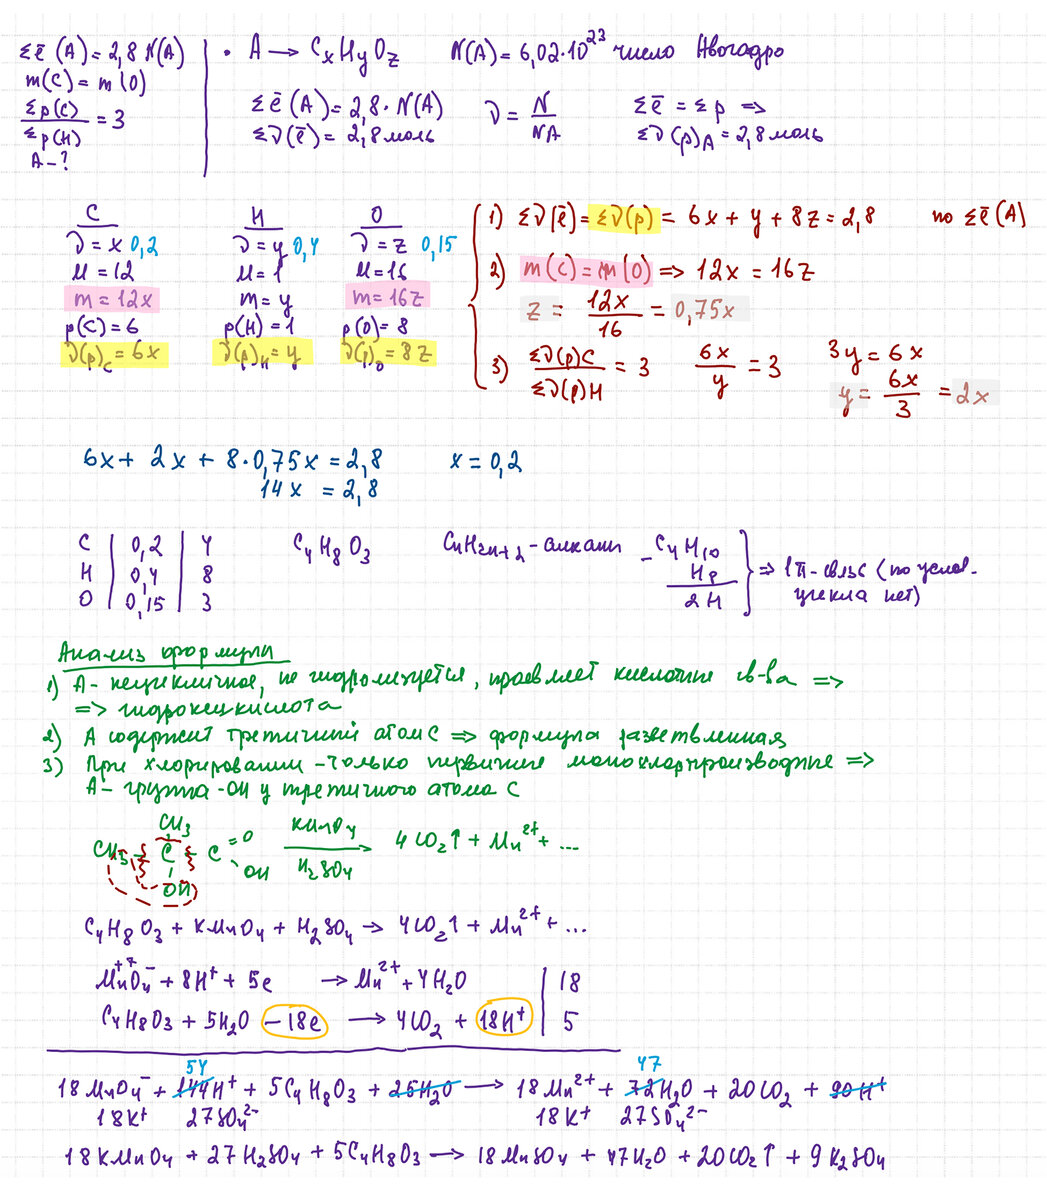 Σē (A) = 2,8 N(A)
m(C) = m(O)
Σp(C) / Σp(H) = 3
A - ?
• A → CxHyOz N(A) = 6,02·10²³ число Авогадро
Σē (A) = 2,8 · N(A) ν = N / NA Σē = Σp ⇒
Σν(ē) = 2,8 моль Σν(p)A = 2,8 моль
C H O
ν = x 0,2 ν = y 0,4 ν = z 0,15
M = 12 M = 1 M = 16
m = 12x m = y m = 16z
p(C) = 6 p(H) = 1 p(O) = 8
ν(p)C = 6x ν(p)H = y ν(p)O = 8z
1) Σν(ē) = Σν(p) = 6x + y + 8z = 2,8 по Σē(A)
2) m(C) = m(O) ⇒ 12x = 16z
z = 12x / 16 = 0,75x
3) Σν(p)C / Σν(p)H = 3 6x / y = 3 3y = 6x
y = 6x / 3 = 2x
6x + 2x + 8·0,75x = 2,8 x = 0,2
14x = 2,8
C | 0,2 | 4
H | 0,4 | 8
O | 0,15 | 3
C4H8O3 CnH2n+2 - алканы
- C4H10
H8
2H
⇒ 1π-связь (по услов-
цикла нет)
Анализ формулы
1) А - нецикличное, не гидролизуется, проявляет кислотные св-ва ⇒
⇒ гидроксикислота
2) А содержит третичный атом С ⇒ формула разветвленная
3) При хлорировании - только первичные монохлорпроизводные ⇒
А - группа -OH у третичного атома С
CH3
CH3 - C - C = O
OH
OH
KMnO4
H2SO4
→ 4CO2↑ + Mn²⁺ + ...
C4H8O3 + KMnO4 + H2SO4 → 4CO2↑ + Mn²⁺ + ...
+7
MnO4⁻ + 8H⁺ + 5e → Mn²⁺ + 4H2O | 18
C4H8O3 + 5H2O - 18e → 4CO2 + 18H⁺ | 5
54 47
18MnO4⁻ + 144H⁺ + 5C4H8O3 + 25H2O → 18Mn²⁺ + 72H2O + 20CO2 + 90H⁺
18K⁺ 27SO4²⁻ 18K⁺ 27SO4²⁻
18KMnO4 + 27H2SO4 + 5C4H8O3 → 18MnSO4 + 47H2O + 20CO2↑ + 9K2SO4